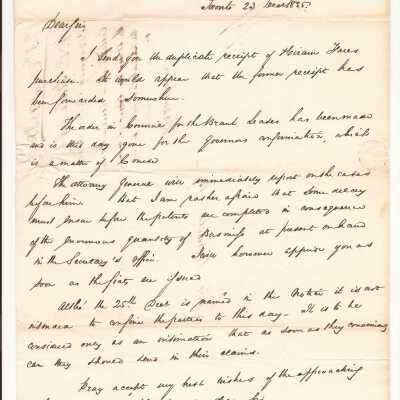 Toronto 23
Dear Sir,
I send you the duplicate receipt of Hiram
purchase. It would appear that the former receipt has
been forwarded Somewhere.
The order in Council for the Brant Leases has been made
and is this day gone for the Governors confirmation, which
is a matter of Course
The Attorney General will immediately report on the cases
before him But I am rather afraid that Some delay
must ensue before the patents are completed in consequence
of the Enormous quantity of Business at present on hand
in the Secretary's office. I will however apprize you as
soon as the fiats are issued
Altho' the 25th Decr is named in the Notice it is not
intended to confine the parties to this day. It is to be
considered only as an intimation that as soon as they conveniently
can they should send in their claims.
Pray accept my best wishes of the approaching